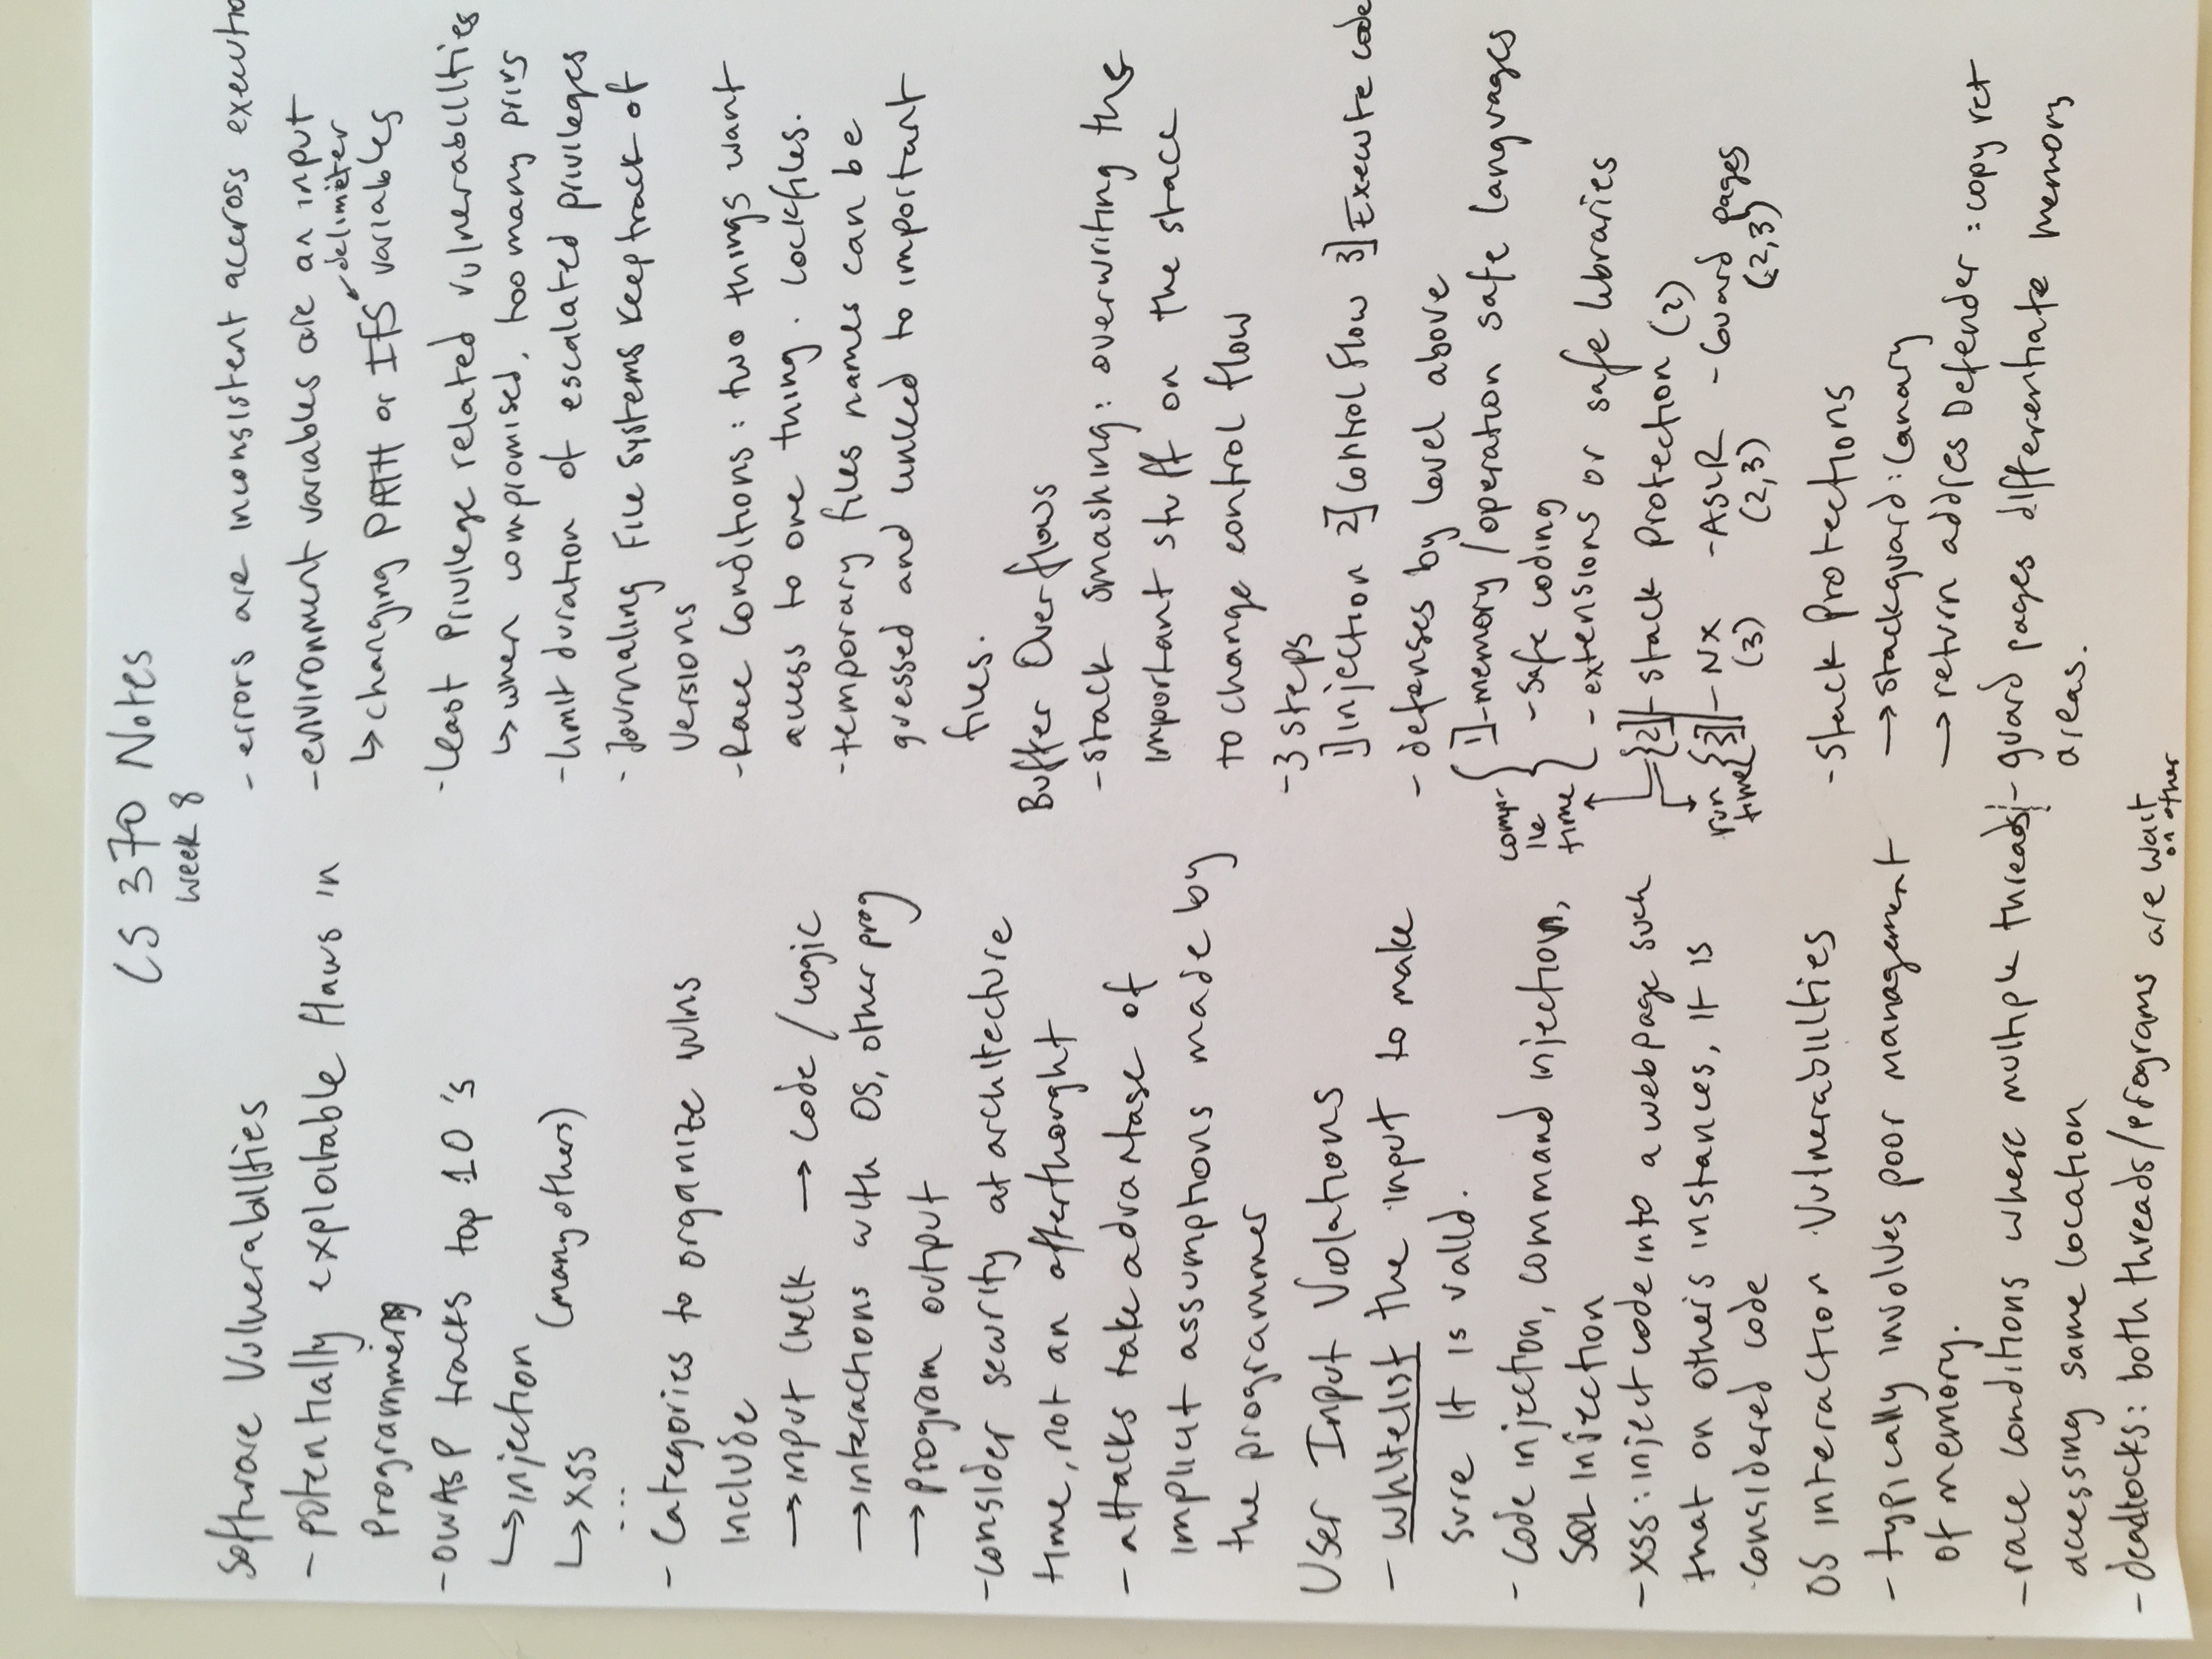 CS 370 Notes
Week 8
Software Vulnerabilities
- potentially exploitable flaws in
Programming
- OWASP tracks top 10's
↳ injection
(many others)
↳ XSS
...
- Categories to organize vulns
Include
→ input check → Code / Logic
→ interactions with OS, other prog
→ program output
- consider security at architecture
time, not an afterthought
- attacks take advantage of
implicit assumptions made by
the programmer
User Input Violations
- whitelist the input to make
sure it is valid.
- Code injection, command injection,
SQL Injection
- XSS: inject code into a webpage such
that on other's instances, it is
considered code
OS interaction Vulnerabilities
- typically involves poor management
of memory.
- race conditions where multiple threads
accessing same location
- deadlocks: both threads/programs are wait
on other
- errors are inconsistent accross executio
- environment variables are an input
delimiter
↳ changing PATH or IFS variables
- Least Privilege related vulnerabilities
↳ when compromised, too many privs
- limit duration of escalated privileges
- Journaling File Systems keep track of
versions
- Race Conditions: two things want
access to one thing. Lockfiles.
- temporary files names can be
guessed and linked to important
files.
Buffer Overflows
- stack smashing: overwriting the
important stuff on the stack
to change control flow
- 3 steps
1] injection 2] Control Flow 3] Execute code
- defenses by level above
1] - memory / operation safe languages
comp-
ile
time
- Safe coding
- extensions or safe libraries
2] - Stack Protection (2)
run
time
3] - NX - ASLR - Guard pages
(3) (2,3) (2,3)
- Stack Protections
→ stackguard: Canary
→ return addres Defender: copy ret
- guard pages differentiate memory
areas.